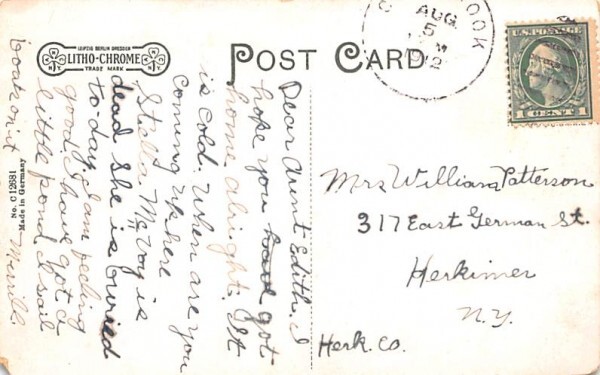 LEIPZIG BERLIN DRESDEN
LITHO-CHROME
TRADE MARK
POST CARD
AUG
5
M
1912
OOK
U.S. POSTAGE
1 CENT 1
No. C12681
Made in Germany
Dear Aunt Edith. I
hope you got
home alright. It
is cold. When are you
coming up here
Stella McVoy is
dead she is buried
to day. I am feeling
good I have got a
little pond I sail
boats on it
Merrill.
Mrs William Patterson
317 East German St.
Herkimer
N.Y.
Herk. Co.